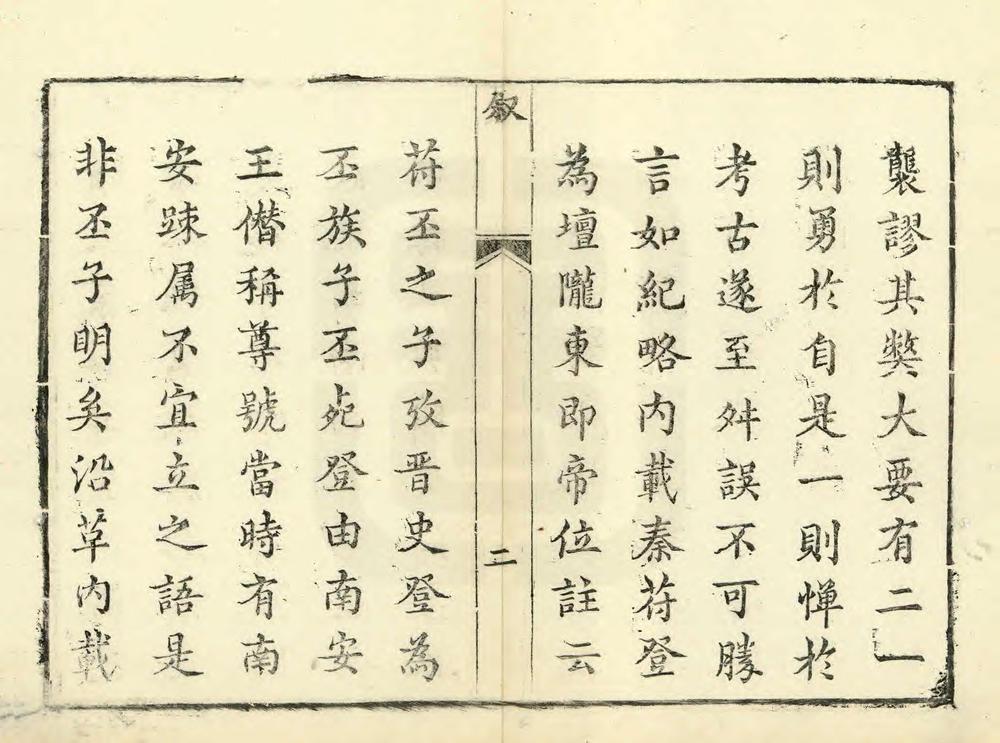 襲謬其獘大要有二一
則勇於自是一則惮於
考古遂至舛誤不可勝
言如紀略内載秦苻登
為壇隴東即帝位註云
叙
二
苻丕之子攷晋史登為
丕族子丕死登由南安
王僣稱尊號當時有南
安踈属不宜立之語是
非丕子明矣沿草内載